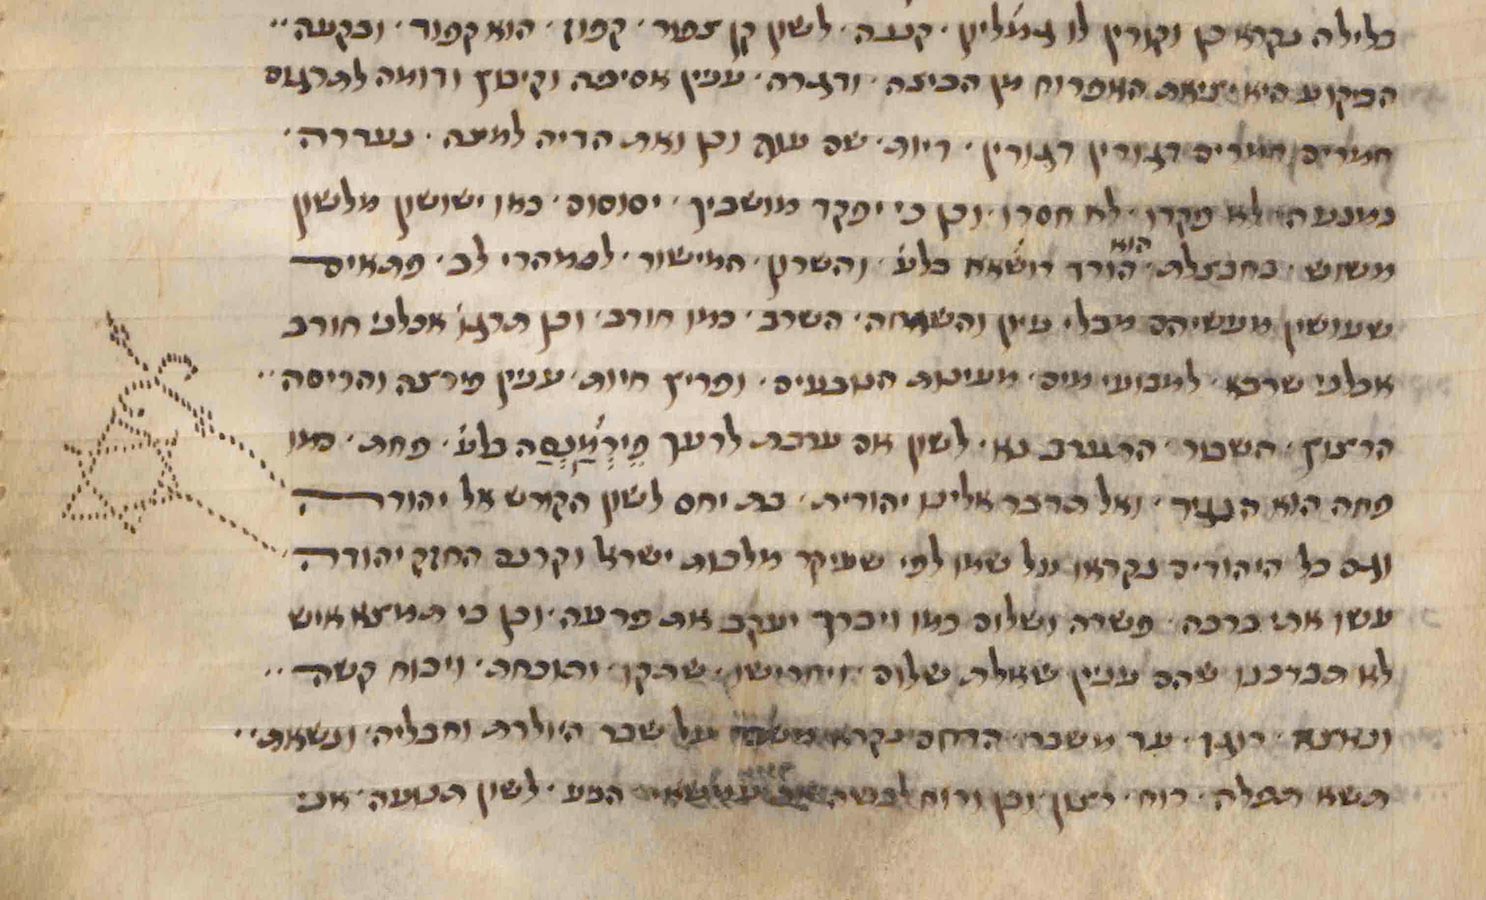 בלילה נקרא כן וקורין לו גמליון · קננה · לשון קן צפור · קפוז · הוא קפוד · ובקעה ··
הביקוע היא יציאת האפרוח מן הביצה · ודגרה · ענין אסיפה וקיבוץ ודומה לתרגום
חמרים חמרים דגורין דגורין · דיות · שם עוף וכן ואת הדיה למינה · נעדרה ·
נמנעה · לא פקדו · לא חסרו · וכן כי יפקד מושביך · יסוסום · כמו ישושון מלשון
משוש · כחבצלת · הוא הורד רושאה בלע׳ · והשרון · המישור · לנמהרי לב · פתאים
שעושין מעשיהם מבלי עיון והשגחה · השרב · כמו חורב · וכן תרגו׳ אכלני חורב
אכלני שרבא · למבועי מים · מעינות הנובעים · ופריץ חיות · ענין פירצה והריסה ··
הרצוץ · השבור · התערב נא · לשון אם ערבת לרעך פירמנסה בלע׳ · פחת · כמו
פחה הוא הנגיד · ואל תדבר אלינו יהודית · בת יחס לשון הקודש אל יהודה
וגם כל היהודים נקראו על שמו לפי שעיקר מלכות ישראל וקרנם החזק יהודה
עשו אתי ברכה · פשרה ושלום כמו ויברך יעקב את פרעה · וכן כי תמצא איש
לא תברכנו שהם ענין שאלת שלום · ויחרישו · שתקו · ותוכחת · ויכוח קשה ··
ונאצה · רוגז · עד משבר · הרחם נקרא משבר על שבר היולדת וחבליה · ונשאת ··
תשא תפלה · רוח · רצון וכן ורוח לבשה הנע · לשון תנועה · אני